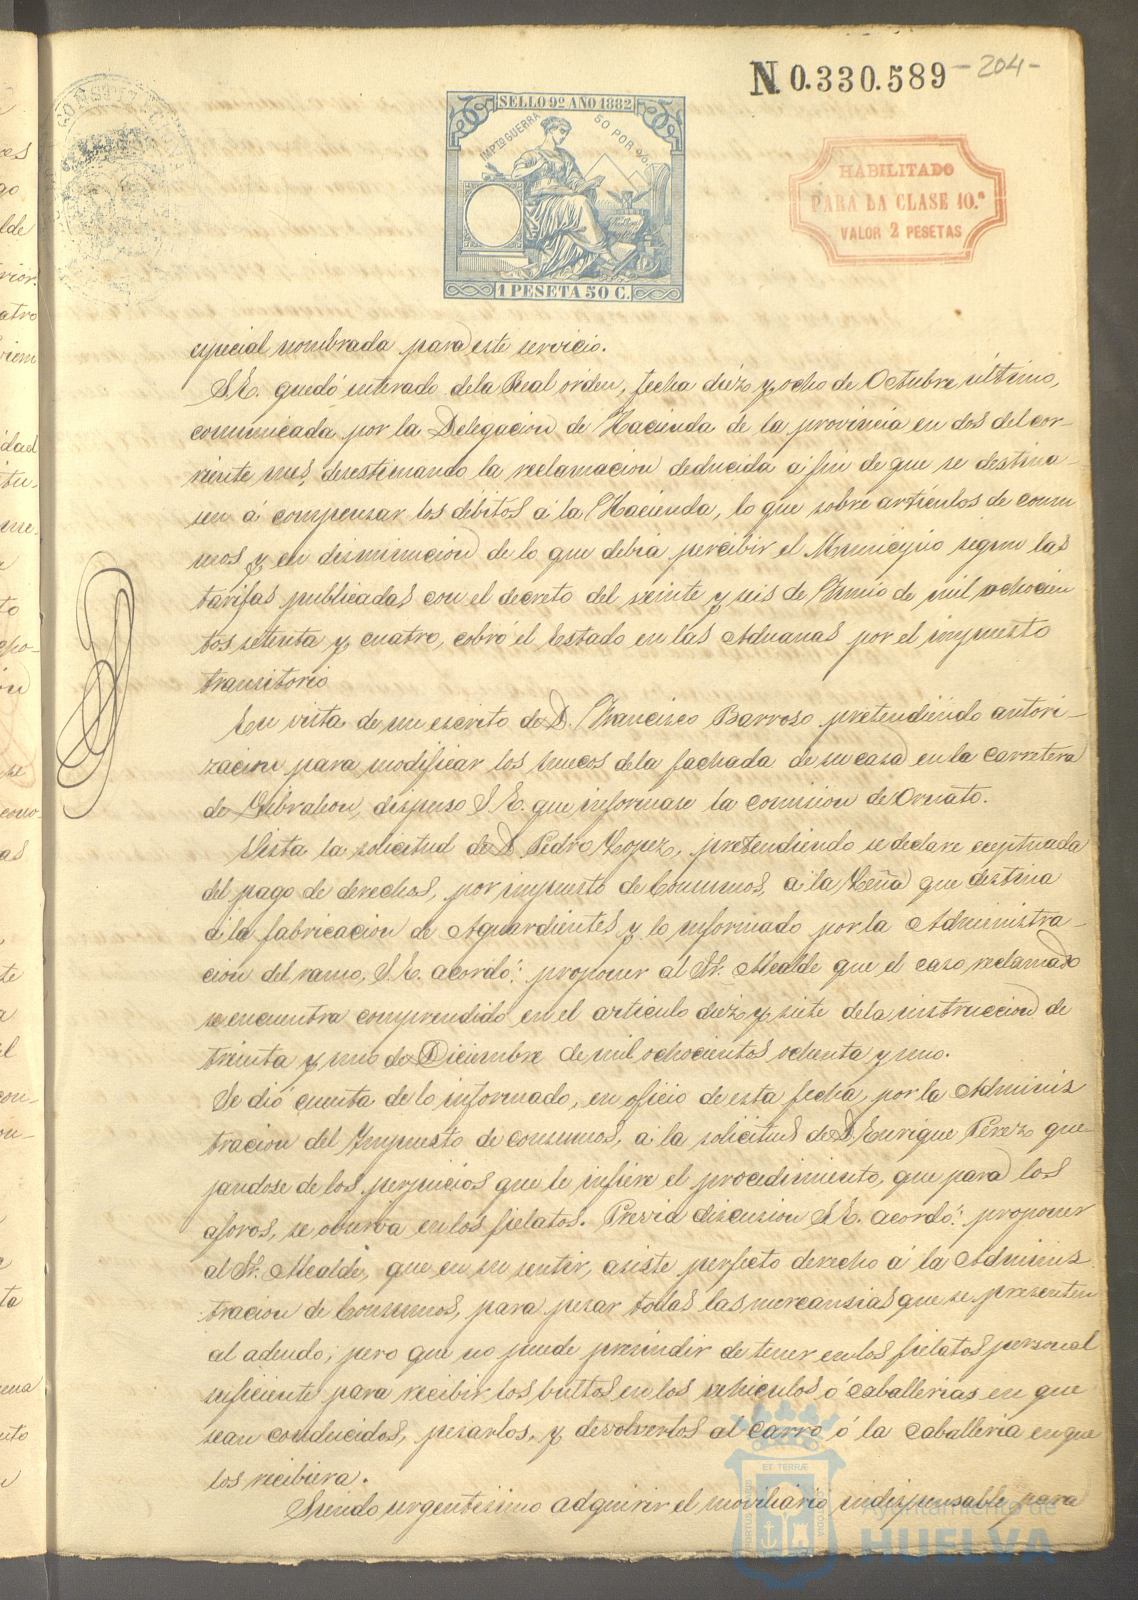 N. 0.330.589 - 204 -
SELLO 9º AÑO 1882
IMPTº GUERRA 50 POR %
1 PESETA 50 C.
HABILITADO
PARA LA CLASE 10.ª
VALOR 2 PESETAS
especial nombrada para este servicio.
S.E. quedó enterado dela Real orden, fecha diez y ocho de Octubre último,
comunicada por la Delegacion de Hacienda de la provincia en dos del cor-
riente mes, desestimando la reclamacion deducida a fin de que se destina-
sen á compensar los débitos á la Hacienda, lo que sobre artículos de consu
mos y en disminucion de lo que debia percibir el Municipio segun las
tarifas publicadas con el decreto del veinte y seis de Junio de mil ochocien
tos setenta y cuatro, cobró el Estado en las Aduanas por el impuesto
transitorio
En vista de un escrito de D. Francisco Barroso pretendiendo autori-
zacion para modificar los huecos dela fachada de su casa en la carretera
de Gibraleon, dispuso S.E. que informase la comision de Ornato.
Vista la solicitud de D Pedro Lopez, pretendiendo se declare eceptuada
del pago de derechos, por impuesto de Consumos, a la Leña que destina
á la fabricacion de Aguardientes y lo informado por la Administra-
cion del ramo, S.E. acordó: proponer al Sr. Alcalde que el caso reclamado
se encuentra comprendido en el articulo diez y siete dela instruccion de
treinta y uno de Diciembre de mil ochocientos ochenta y uno.
Se dió cuenta de lo informado, en oficio de esta fecha, por la Adminis
tracion del Impuesto de consumos, a la solicitud de D Enrique Perez que-
jandose de los perjuicios que le infiere el procedimiento, que para los
aforos, se observa en los fielatos. Previa discusion S.E. acordó: proponer
al Sr. Alcalde, que en su sentir, asiste perfecto derecho á la Adminis
tracion de Consumos, para pesar todas las mercansias que se presenten
al adeudo; pero que no puede presindir de tener en los fielatos personal
suficiente para recibir los bultos en los vehiculos ó caballerias en que
sean conducidos, pesarlos, y devolverlos al carro ó la caballeria en que
los recibiera.
Siendo urgentisimo adquirir el moviliario indispensable para
Ayuntamiento de
HUELVA